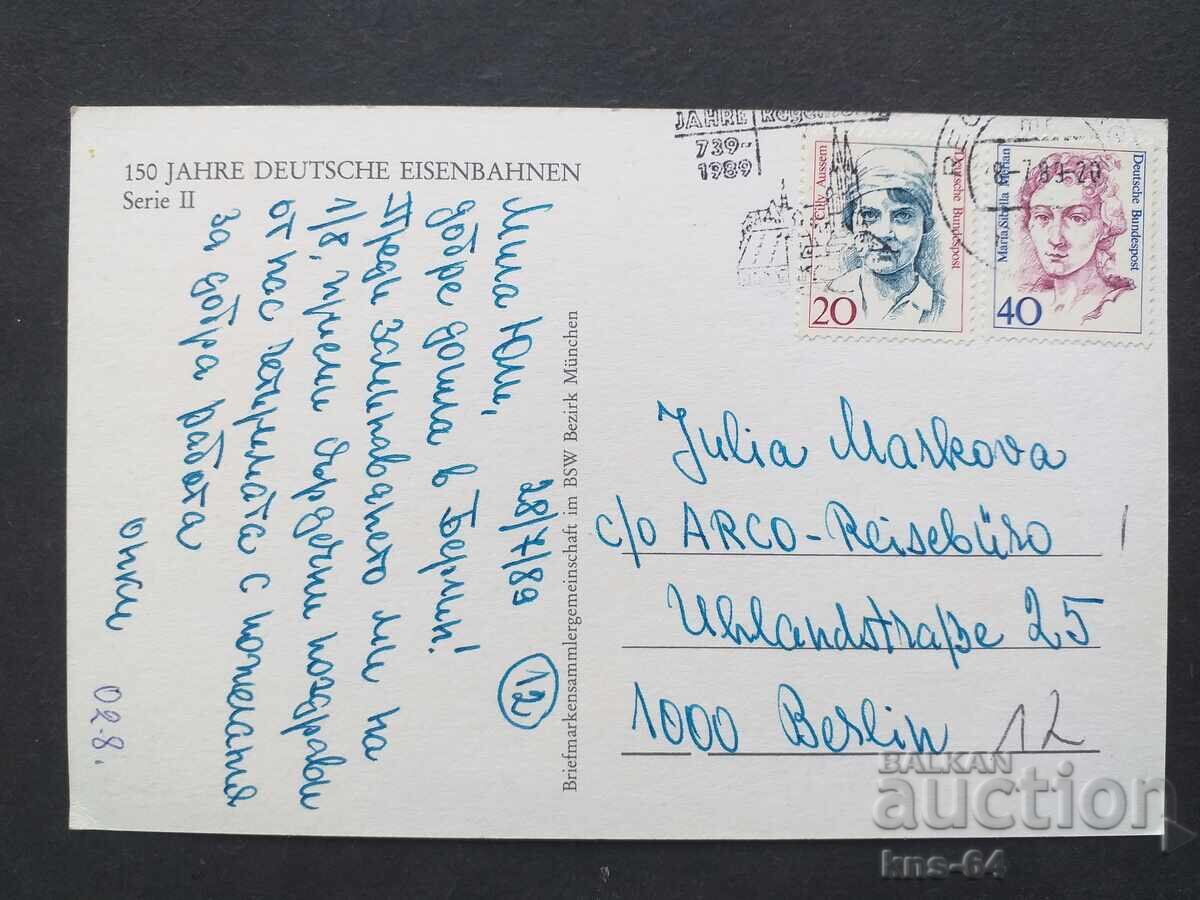 150 JAHRE DEUTSCHE EISENBAHNEN
Serie II
28/7/89
Мила Юли,
добре дошла в Берлин!
Преди заминаването ми на
1/8, приеми сърдечни поздрави
от нас четиримата с пожелания
за добра работа
02.8.
12
Briefmarkensammlergemeinschaft im BSW Bezirk München
JAHRE
739-
1989
REG
-7.89-20
Cilly Aussem
Deutsche Bundespost
20
Maria Sibylla Merian
Deutsche Bundespost
40
Julia Markova
c/o ARCO-Reisebüro
Uhlandstraße 25
1000 Berlin 12
BALKAN
auction
kns-64